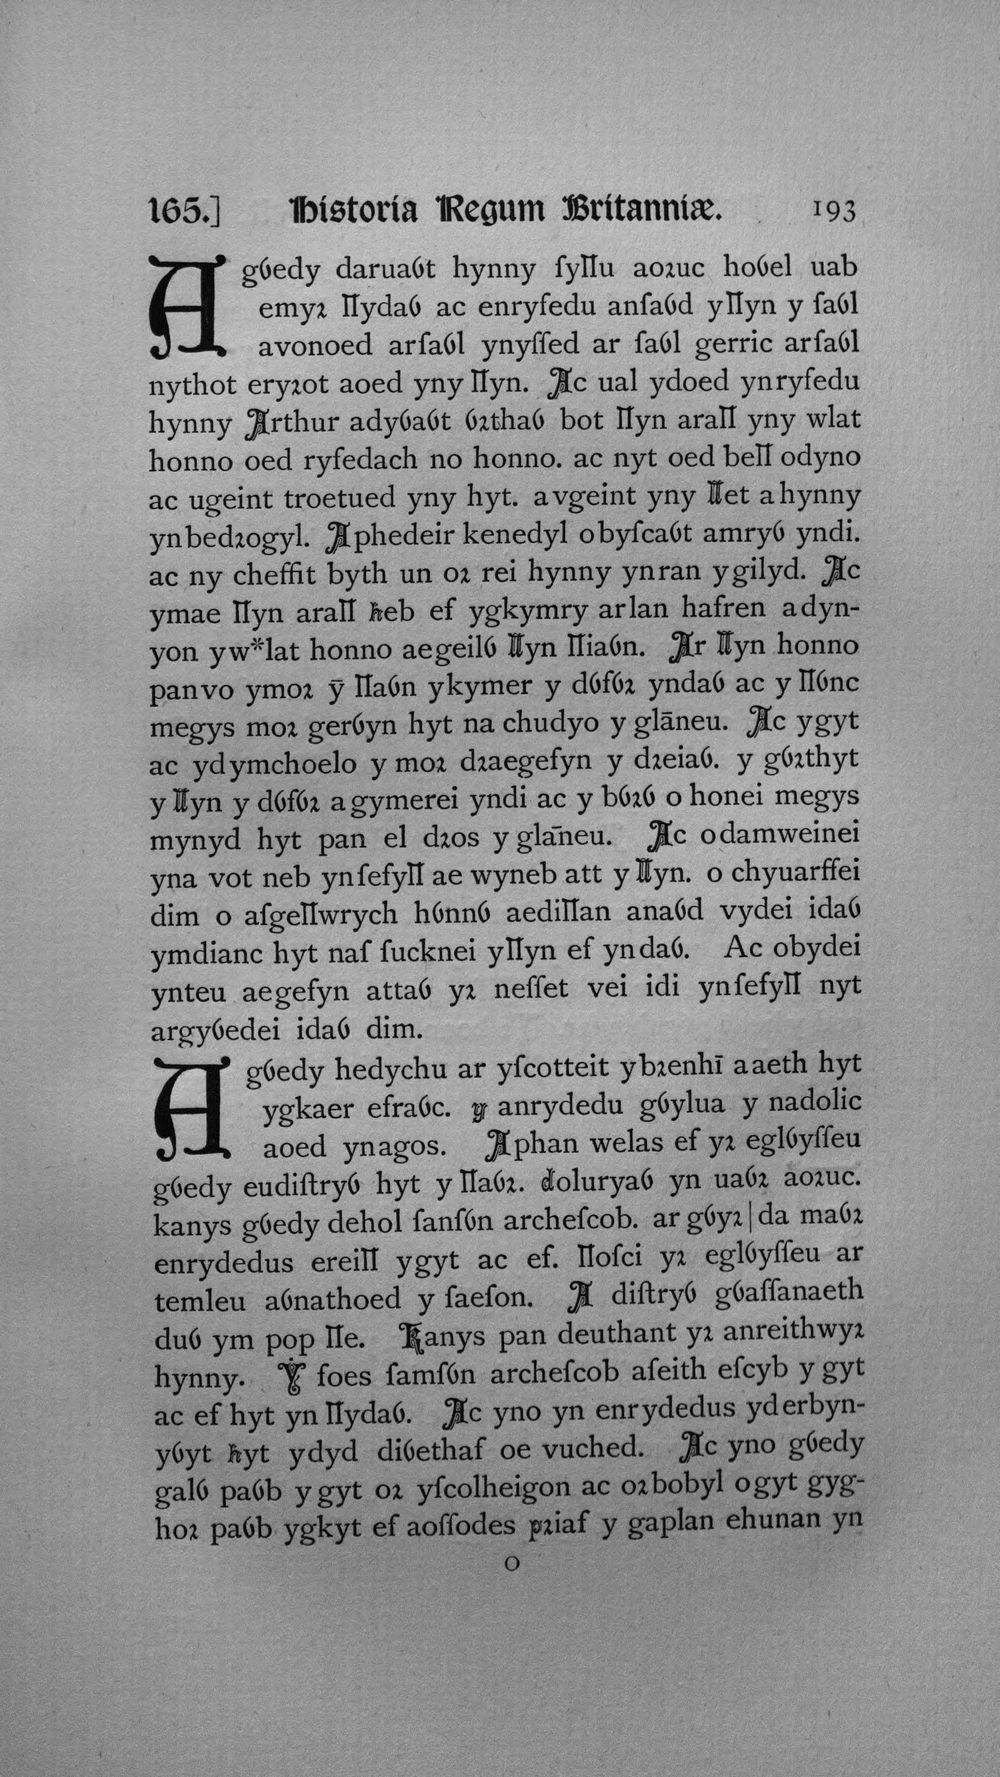 165.] Historia Regum Britanniæ. 193
Agỽedy daruaỽt hynny ſyỻu aoꝛuc hoỽel uab
emyꝛ ỻydaỽ ac enryfedu anſaỽd yỻyn y ſaỽl
avonoed arſaỽl ynyſſed ar ſaỽl gerric arſaỽl
nythot eryꝛot aoed yny ỻyn. Ac ual ydoed ynryfedu
hynny Arthur adyỽaỽt ỽꝛthaỽ bot ỻyn araỻ yny wlat
honno oed ryfedach no honno. ac nyt oed beỻ odyno
ac ugeint troetued yny hyt. avgeint yny ỻet ahynny
ynbedꝛogyl. Aphedeir kenedyl obyſcaỽt amryỽ yndi.
ac ny cheffit byth un oꝛ rei hynny ynran ygilyd. Ac
ymae ỻyn araỻ heb ef ygkymry arlan hafren adyn-
yon yw*lat honno aegeilỽ ỻyn ỻiaỽn. Ar ỻyn honno
panvo ymoꝛ ȳ ỻaỽn ykymer y dỽfỽꝛ yndaỽ ac y ỻỽnc
megys moꝛ gerỽyn hyt na chudyo y glāneu. Ac ygyt
ac ydymchoelo y moꝛ dꝛaegefyn y dꝛeiaỽ. y gỽꝛthyt
y ỻyn y dỽfỽꝛ agymerei yndi ac y bỽꝛỽ o honei megys
mynyd hyt pan el dꝛos y glāneu. Ac odamweinei
yna vot neb ynſefyỻ ae wyneb att y ỻyn. o chyuarffei
dim o aſgeỻwrych hỽnnỽ aediỻan anaỽd vydei idaỽ
ymdianc hyt naſ ſucknei yỻyn ef yndaỽ. Ac obydei
ynteu aegefyn attaỽ yꝛ neſſet vei idi ynſefyỻ nyt
argyỽedei idaỽ dim.
Agỽedy hedychu ar yſcotteit ybꝛenhī aaeth hyt
ygkaer efraỽc. y anrydedu gỽylua y nadolic
aoed ynagos. Aphan welas ef yꝛ eglỽyſſeu
gỽedy eudiſtryỽ hyt y ỻaỽꝛ. doluryaỽ yn uaỽꝛ aoꝛuc.
kanys gỽedy dehol ſanſỽn archeſcob. ar gỽyꝛ|da maỽꝛ
enrydedus ereiỻ ygyt ac ef. ỻoſci yꝛ eglỽyſſeu ar
temleu aỽnathoed y ſaeſon. A diſtryỽ gỽaſſanaeth
duỽ ym pop ỻe. Kanys pan deuthant yꝛ anreithwyꝛ
hynny. Y foes ſamſỽn archeſcob aſeith eſcyb y gyt
ac ef hyt yn ỻydaỽ. Ac yno yn enrydedus yderbyn-
yỽyt hyt ydyd diỽethaf oe vuched. Ac yno gỽedy
galỽ paỽb y gyt oꝛ yſcolheigon ac oꝛbobyl ogyt gyg-
hoꝛ paỽb ygkyt ef aoſſodes pꝛiaf y gaplan ehunan yn
O